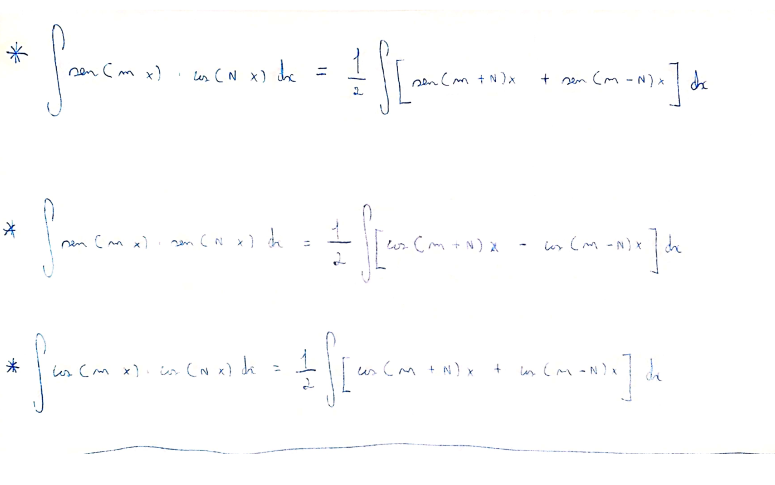 * ∫ sen(m x) · cos(N x) dx = 1/2 ∫ [sen(m + N)x + sen(m - N)x] dx
* ∫ sen(m x) · sen(N x) dx = 1/2 ∫ [cos(m + N)x - cos(m - N)x] dx
* ∫ cos(m x) · cos(N x) dx = 1/2 ∫ [cos(m + N)x + cos(m - N)x] dx